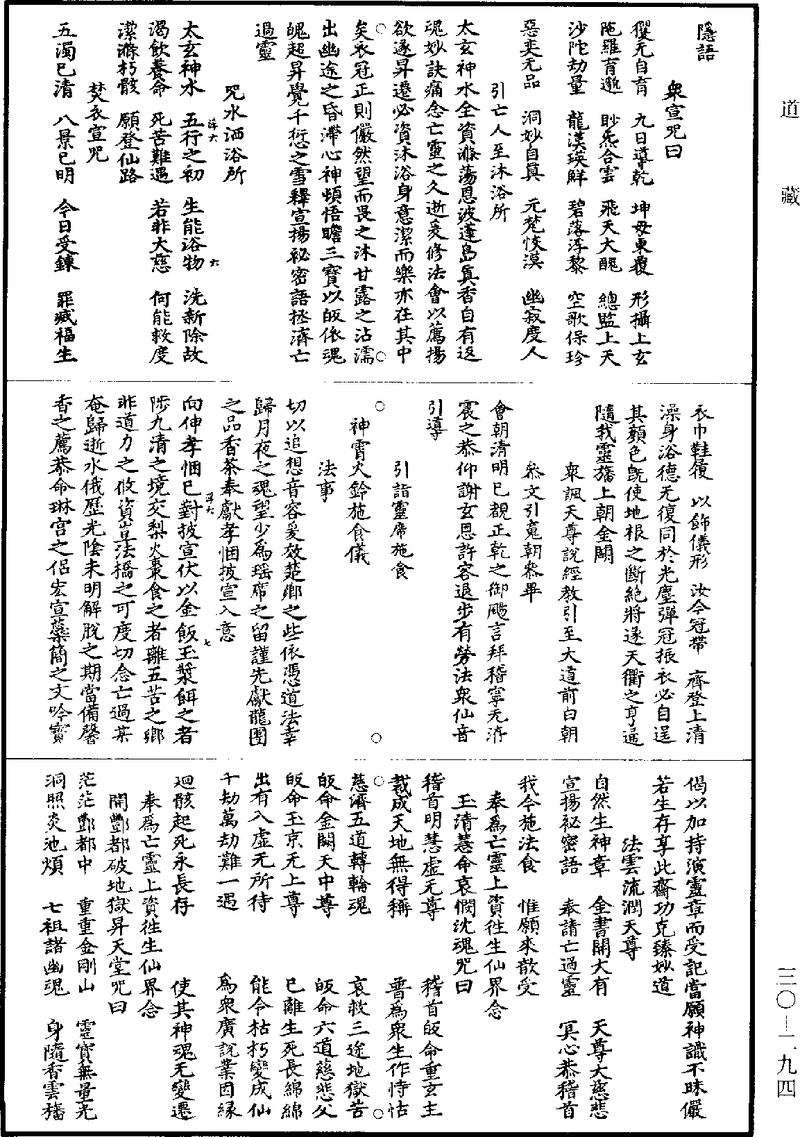 道藏
隱語
衆宣咒曰
玃无自育　九日導乾　坤母東覆　形攝上玄
陁羅育邈　眇炁合雲　飛天大醜　總監上天
沙陀劫量　龍漢瑛鮮　碧落浮黎　空歌保珍
惡奕无品　洞妙自真　元梵恢漠　幽寂度人
引亡人至沐浴所
太玄神水全資滌蕩恩波蓬島真香自有返
魂妙訣痛念亡靈之久逝爰修法會以薦揚
欲遂昇遷必資沐浴身意潔而樂亦在其中
矣衣冠正則儼然望而畏之沐甘露之沾濡
出幽途之昏滯心神頓悟瞻三寶以皈依魂
魄超昇覺千愆之雪釋宣揚祕密語拯濟亡
過靈
咒水洒浴所
太玄神水　五行之初　生能浴物　洗新除故
渴飲養命　死苦難遇　若非大慈　何能救度
潔滌朽骸　願登仙路
焚衣宣咒
五濁已清　八景已明　今日受鍊　罪滅福生
衣巾鞋履　以飾儀形　汝今冠帶　齊登上清
澡身浴德无復同於光塵彈冠振衣必自逞
其顏色旣使地根之斷絕將遂天衢之亨通
隨我靈旛上朝金闕
衆諷天尊說經教引至大道前白朝
叅文引䰟朝叅畢
會朝清明已覩正乾之御颺言拜稽寧无渧
震之恭仰謝玄恩許容退步有勞法衆仙音
引導
引詣靈席施食
神霄火鈴施食儀
法事
切以追想音容爰效楚鄉之些依憑道法幸
歸月夜之魂望少爲瑤席之留謹先獻龍團
之品香茶奉獻孝悃披宣入意
向伸孝悃已對披宣伏以金飯玉漿餌之者
陟九清之境交梨火棗食之者離五苦之鄉
非道力之攸資豈法橋之可度切念亡過某
奄歸逝水俄歷光陰未明解脫之期當備馨
香之薦恭命琳宮之侶宏宣蘂簡之文吟寶
偈以加持演靈章而受記當願神識不昧儼
若生存享此齋功克臻妙道
法雲流潤天尊
自然生神章　金書開大有　天尊大慈悲
宣揚祕密語　奉請亡過靈　冥心恭稽首
我今施法食　惟願來歆受
奉爲亡靈上資徃生仙界念
玉清慧命哀憫沈魂咒曰
稽首明慧虛无尊　稽首皈命重玄主
裁成天地無得稱　普爲衆生作恃怙
慈濟五道轉輪魂　哀救三途地獄苦
皈命金闕天中尊　皈命六道慈悲父
皈命玉京无上尊　已離生死長綿綿
出有入虛无所待　能令枯朽變成仙
千劫萬劫難一遇　爲衆廣說業因緣
迴骸起死永長存　使其神魂无變遷
奉爲亡靈上資徃生仙界念
開酆都破地獄昇天堂咒曰
茫茫酆都中　重重金剛山　靈寶無量光
洞照炎池煩　七祖諸幽魂　身隨香雲旛
三〇—一九四